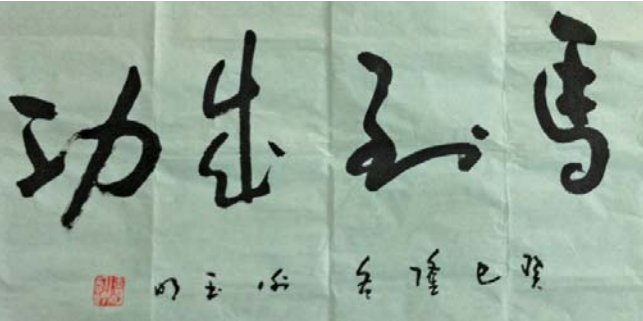 馬到成功
癸巳隆冬 玉明